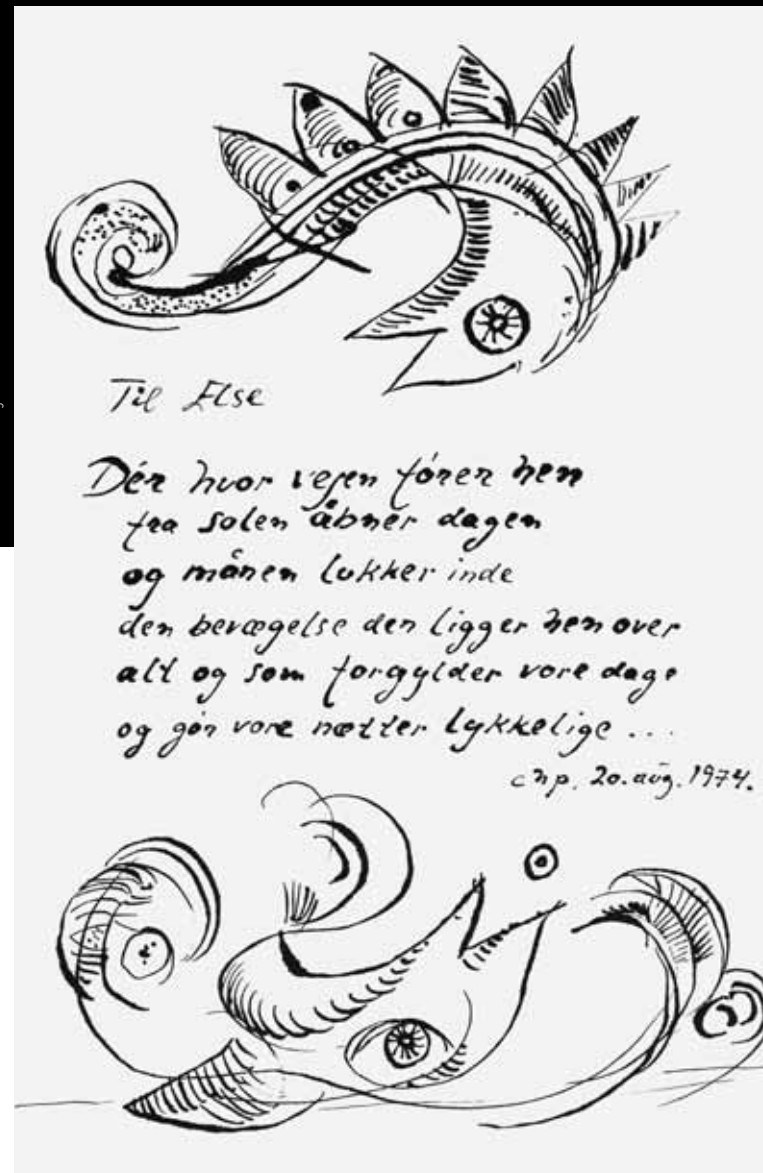 Til Else
Dér hvor vejen fører hen
fra solen åbner dagen
og månen lukker inde
den bevægelse den ligger hen over
alt og som forgylder vore dage
og gør vore nætter lykkelige ...
chp. 20. aug. 1974.